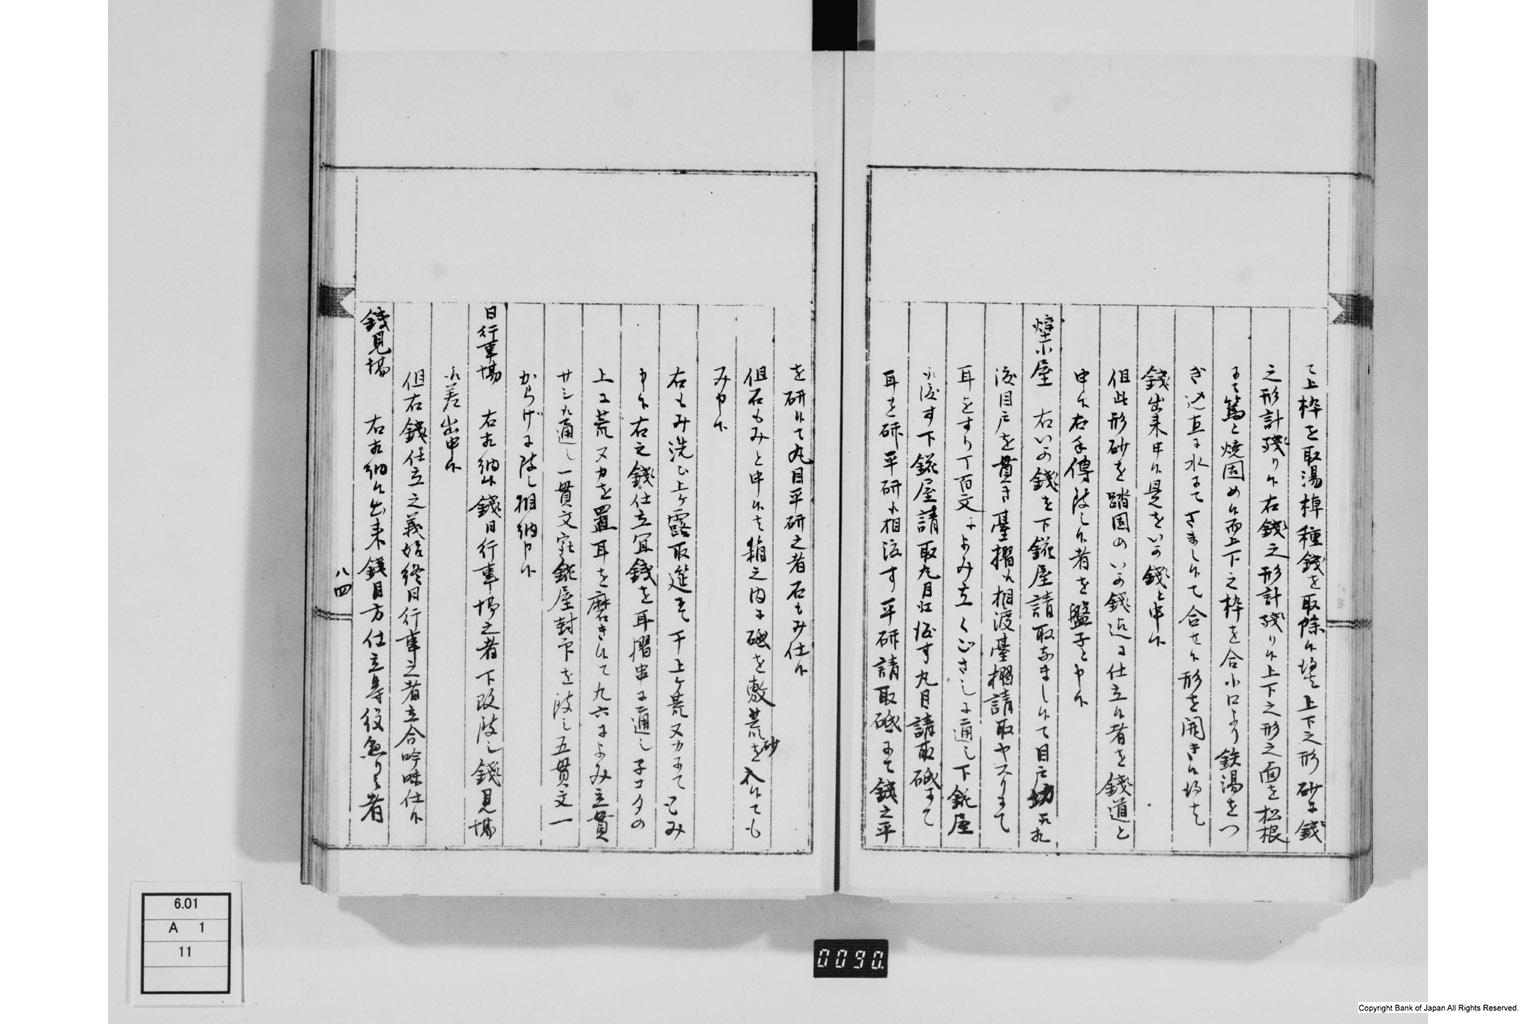 て上枠を取湯棹種錢を取除ケ候得は上下之形砂に錢
之形計殘り候右錢之形計殘り候上下之形之面を松根
にて篤と燒固め候而上下之枠を合小口より鉄湯をつ
ぎ込直に水にてさまし候て合せ候形を開き候得は
錢出來申候是をいか錢と申候
但此形砂を踏固めいか錢迄に仕立候者を錢道と
申候右手傳致し候者を盤子と申候
燒小屋 右いか錢を下鋩屋請取なまし候て目戸
後目戸を貫き臺摺へ相渡臺摺請取ヤスリにて
耳をすり丁百文によみ立くじさしに通し下鋩屋
へ渡す下鋩屋請取丸目へ渡す丸目請取砥にて
耳を研平研へ相渡す平研請取砥にて錢之平
を研候て丸目平研之者石もみ仕候
但石もみと申候は箱之内に砥を敷荒砂を入候ても
み申候
右もみ洗ひ上ケ露取莚にて干上ケ荒又カにてもみ
申候右之錢仕立冝錢を耳摺串に通し子コタの
上に荒又カを置耳を磨き候て九六によみ立貫
サシへ通し一貫文宛鋩屋封印を致し五貫文一
からげに致し相納申候
日行事場 右相納候錢日行事場之者下改致し錢見場
へ差出申候
但右錢仕立之義始終日行事之者立合吟味仕候
錢見場 右相納候出來錢目方仕立等役懸り之者
八四
6.01
A 1
11
0090.
Copyright Bank of Japan All Rights Reserved.